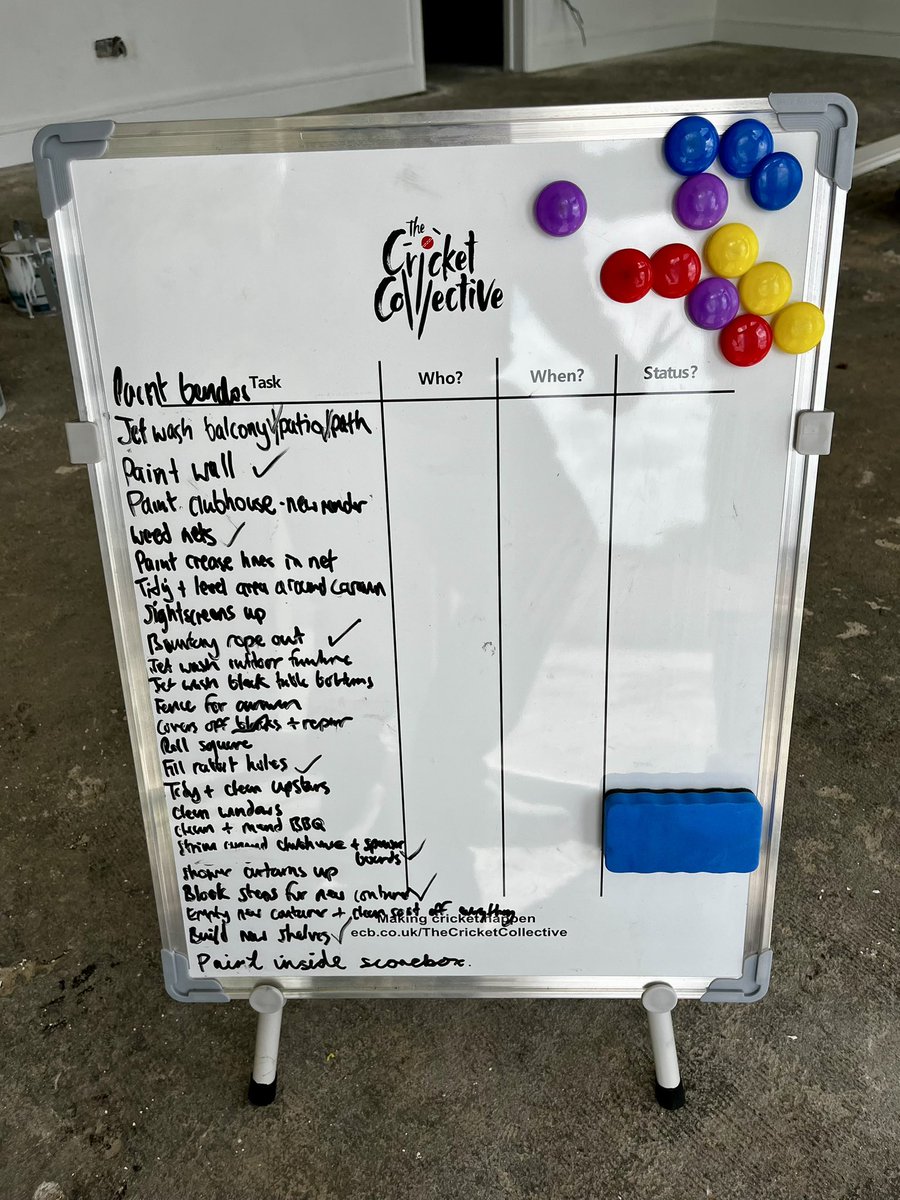 The
Cricket
Collective
Task Who? When? Status?
Paint
Jet wash balcony/patio/path
Paint wall ✓
Paint clubhouse - new render
Weed nets ✓
Paint crease lines in net
Tidy + level area around caravan
Sightscreens up
Boundary rope out ✓
Jet wash outdoor furniture
Jet wash black table bottoms
Fence for caravan
Covers off blocks + repair
Roll square
Fill rabbit holes ✓
Tidy + clean upstairs
Clean windows
Clean + mend BBQ
Strim around clubhouse + sponsor
boards ✓
Shower curtains up
Block steps for new container ✓
Empty new container + clean sort off everything
Making cricket happen
Build new shelves ✓
ecb.co.uk/TheCricketCollective
Paint inside scorebox.